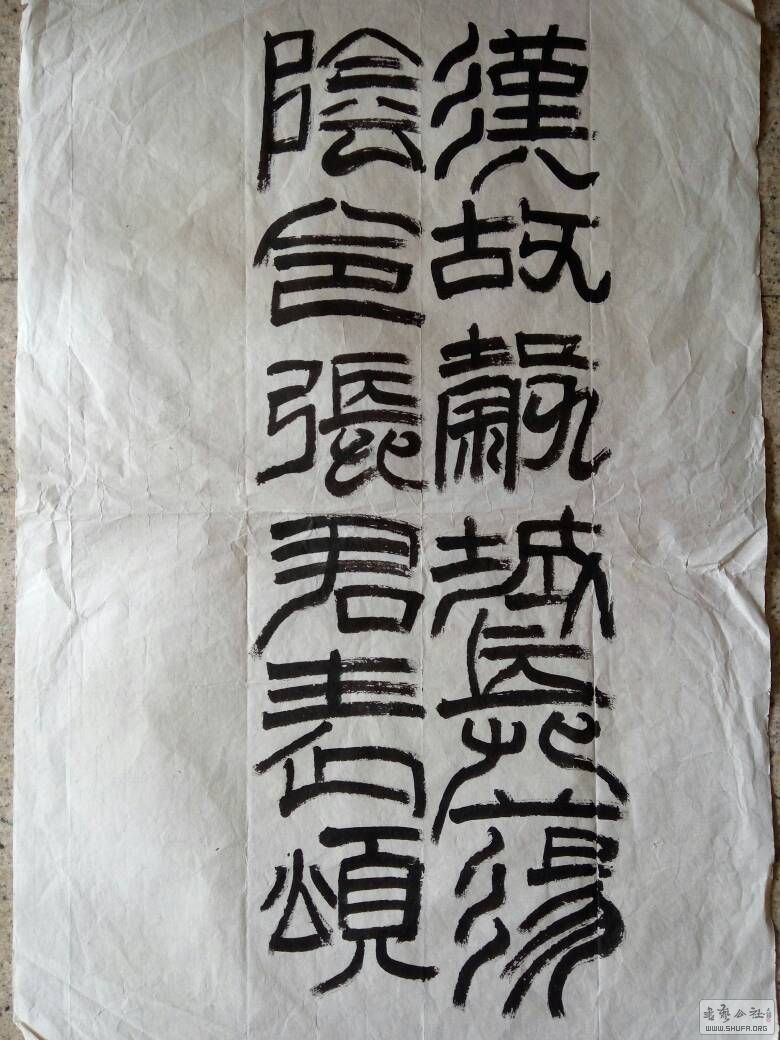 漢故穀城長蕩
陰令張君表頌
書藝公社
WWW.SHUFA.ORG